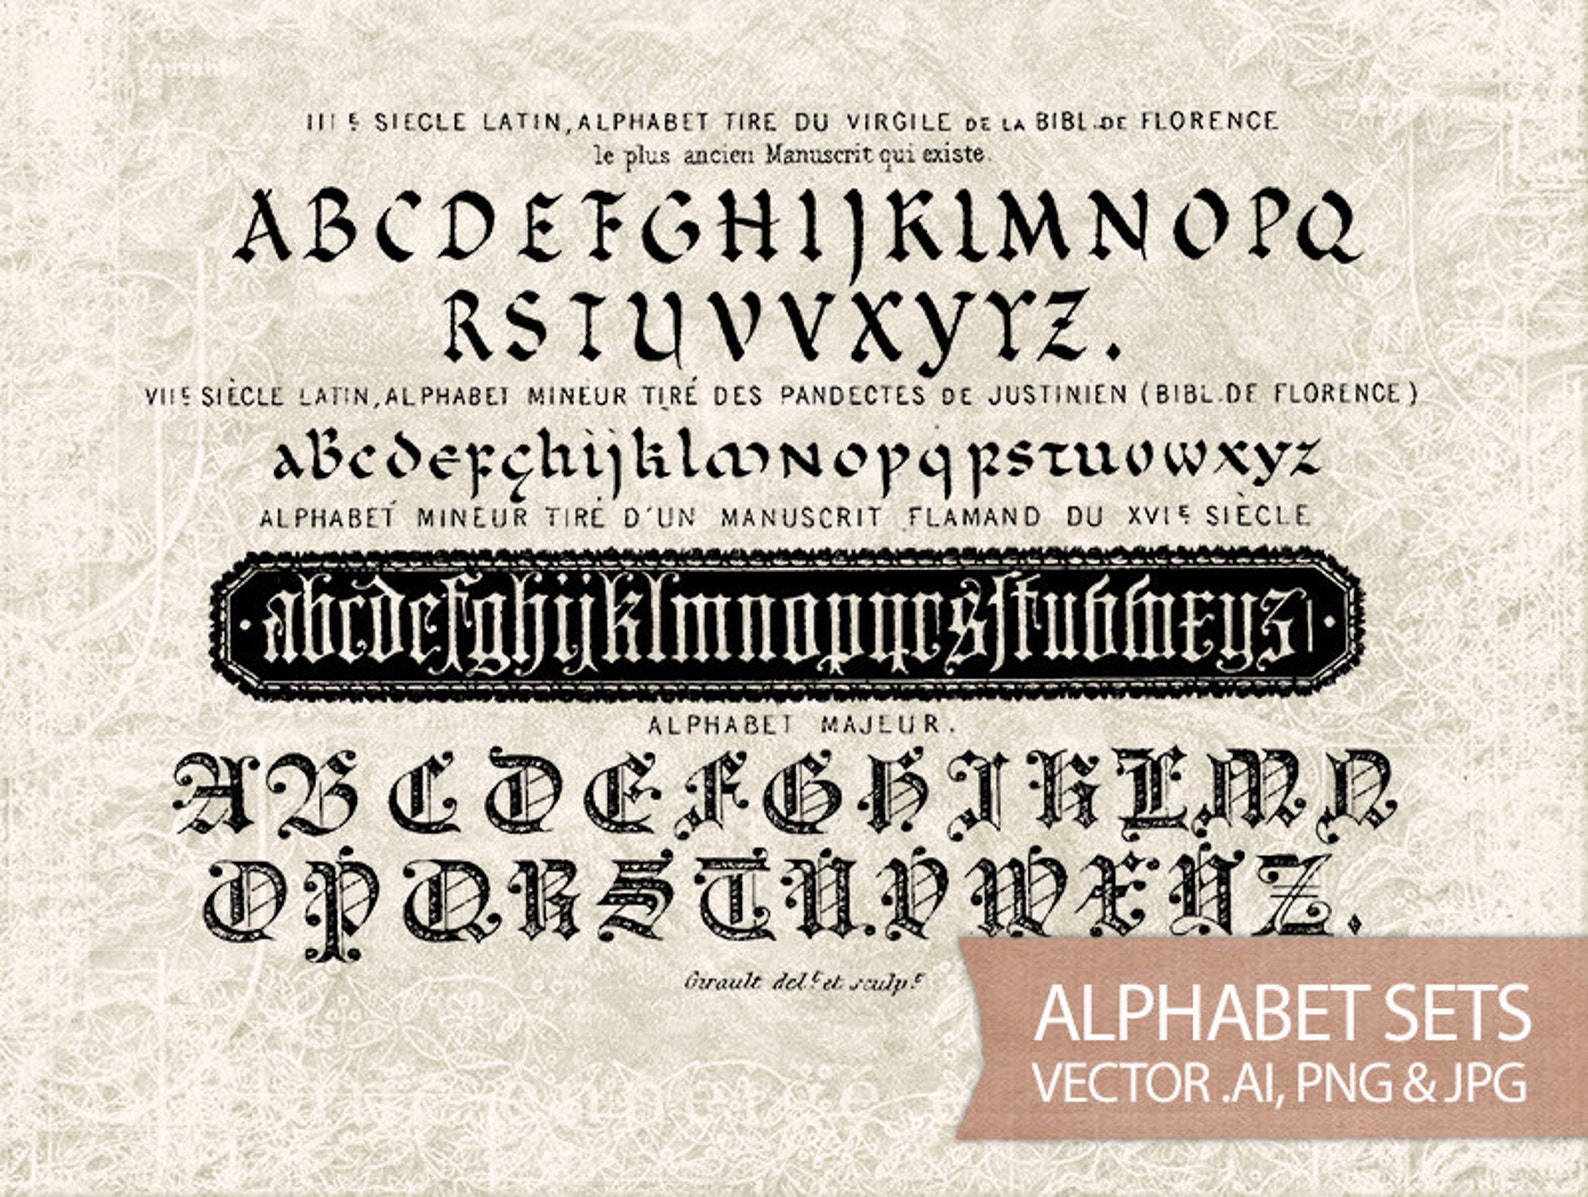 IIIE SIECLE LATIN, ALPHABET TIRE DU VIRGILE DE LA BIBL. DE FLORENCE
le plus ancien Manuscrit qui existe.
ABCDEFGHIJKLMNOPQ
RSTUVVXYYZ.
VIIE SIÈCLE LATIN, ALPHABET MINEUR TIRÉ DES PANDECTES DE JUSTINIEN (BIBL. DE FLORENCE)
abcdefghijklmnopqrstuvwxyz
ALPHABET MINEUR TIRÉ D'UN MANUSCRIT FLAMAND DU XVIE SIÈCLE
abcdefghijklmnopqrsſtuvwxyz
ALPHABET MAJEUR.
ABCDEFGHIKLMN
OPQRSTUVWXYZ.
Girault del.t et sculp.t
ALPHABET SETS
VECTOR .AI, PNG & JPG